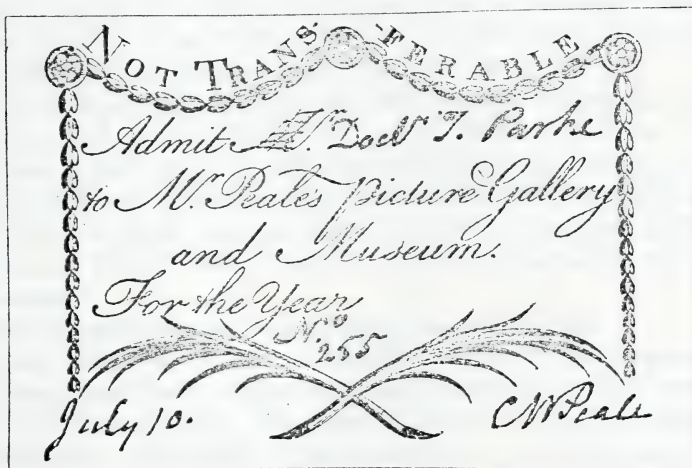 NOT TRANS-FERABLE
Admit Mr. Doctr T. Parke
to Mr. Peale's Picture Gallery
and Museum.
For the Year
No. 255
July 10. CWPeale